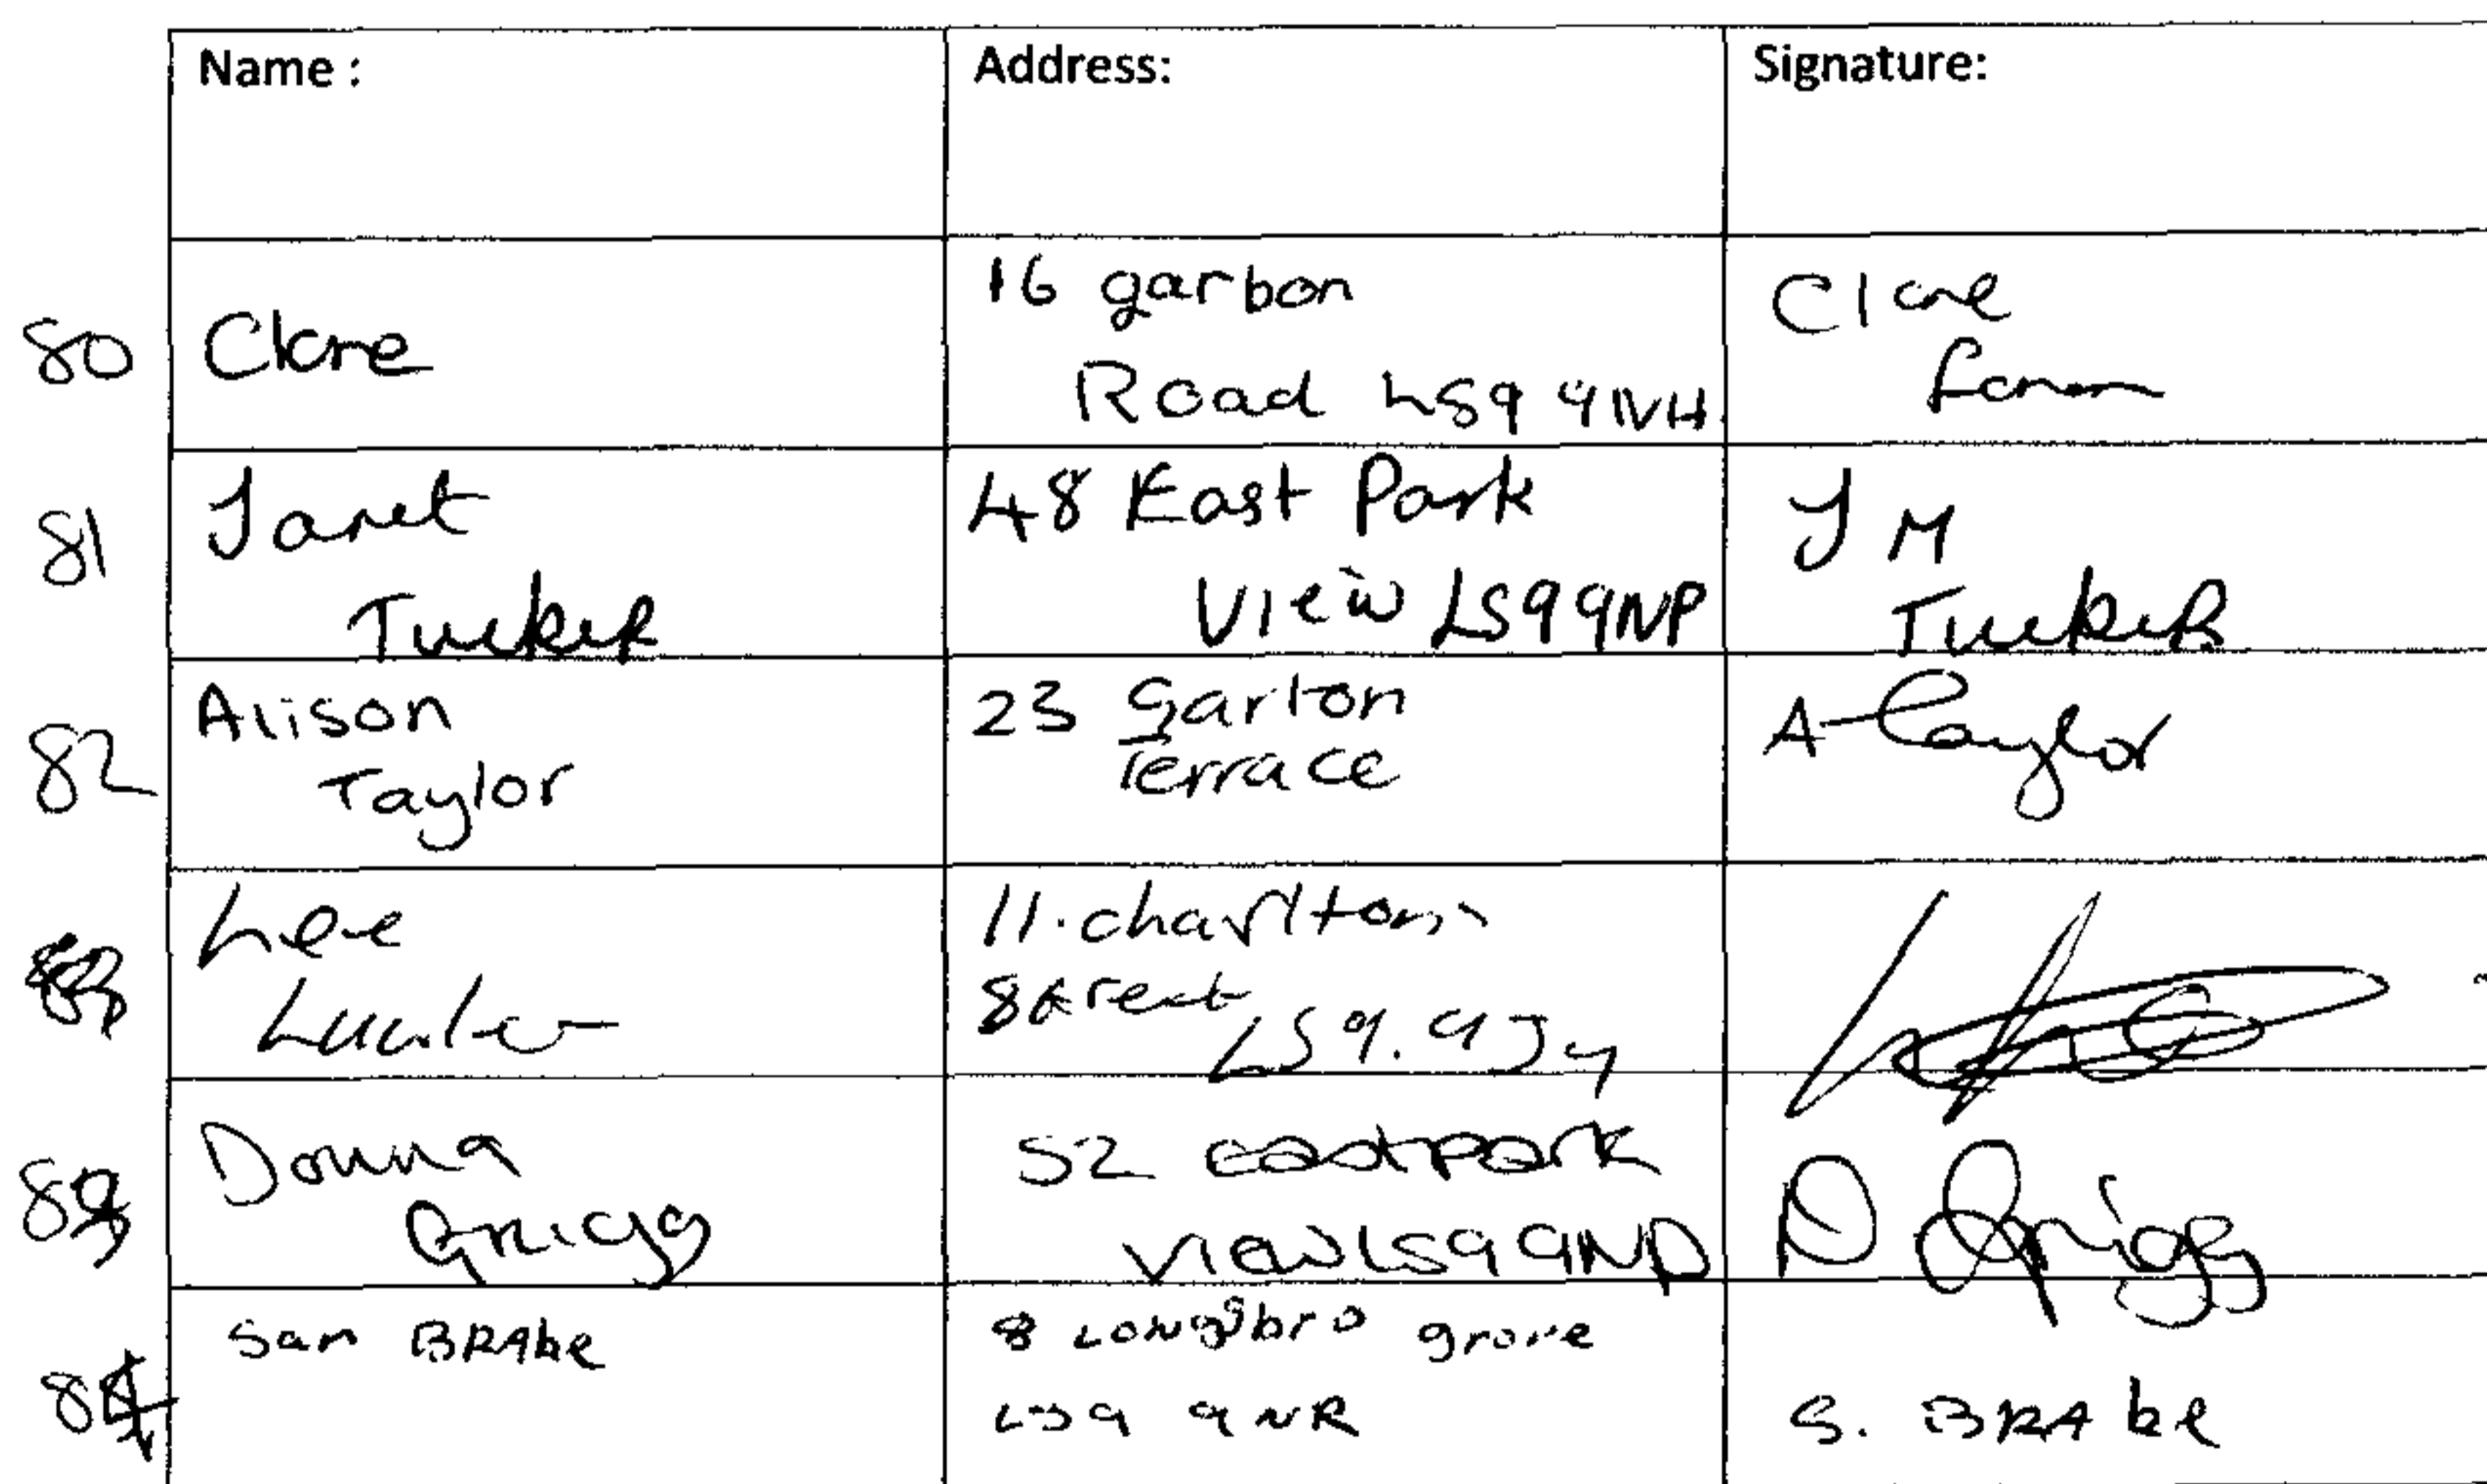 Name : Address: Signature:
80 Clare 16 garbon Road LS9 9NH Clare
81 Janet Tucker 48 East Park View LS9 9NP J M Tucker
82 Alison Taylor 23 Garton Terrace A Taylor
Lee 11. charlton LS9. 9JY
Donna Griggs 52 eastpark view LS9 9NP D Griggs
Sam BRAbe 8 Longbro grove LS9 9NR S. BRAbe